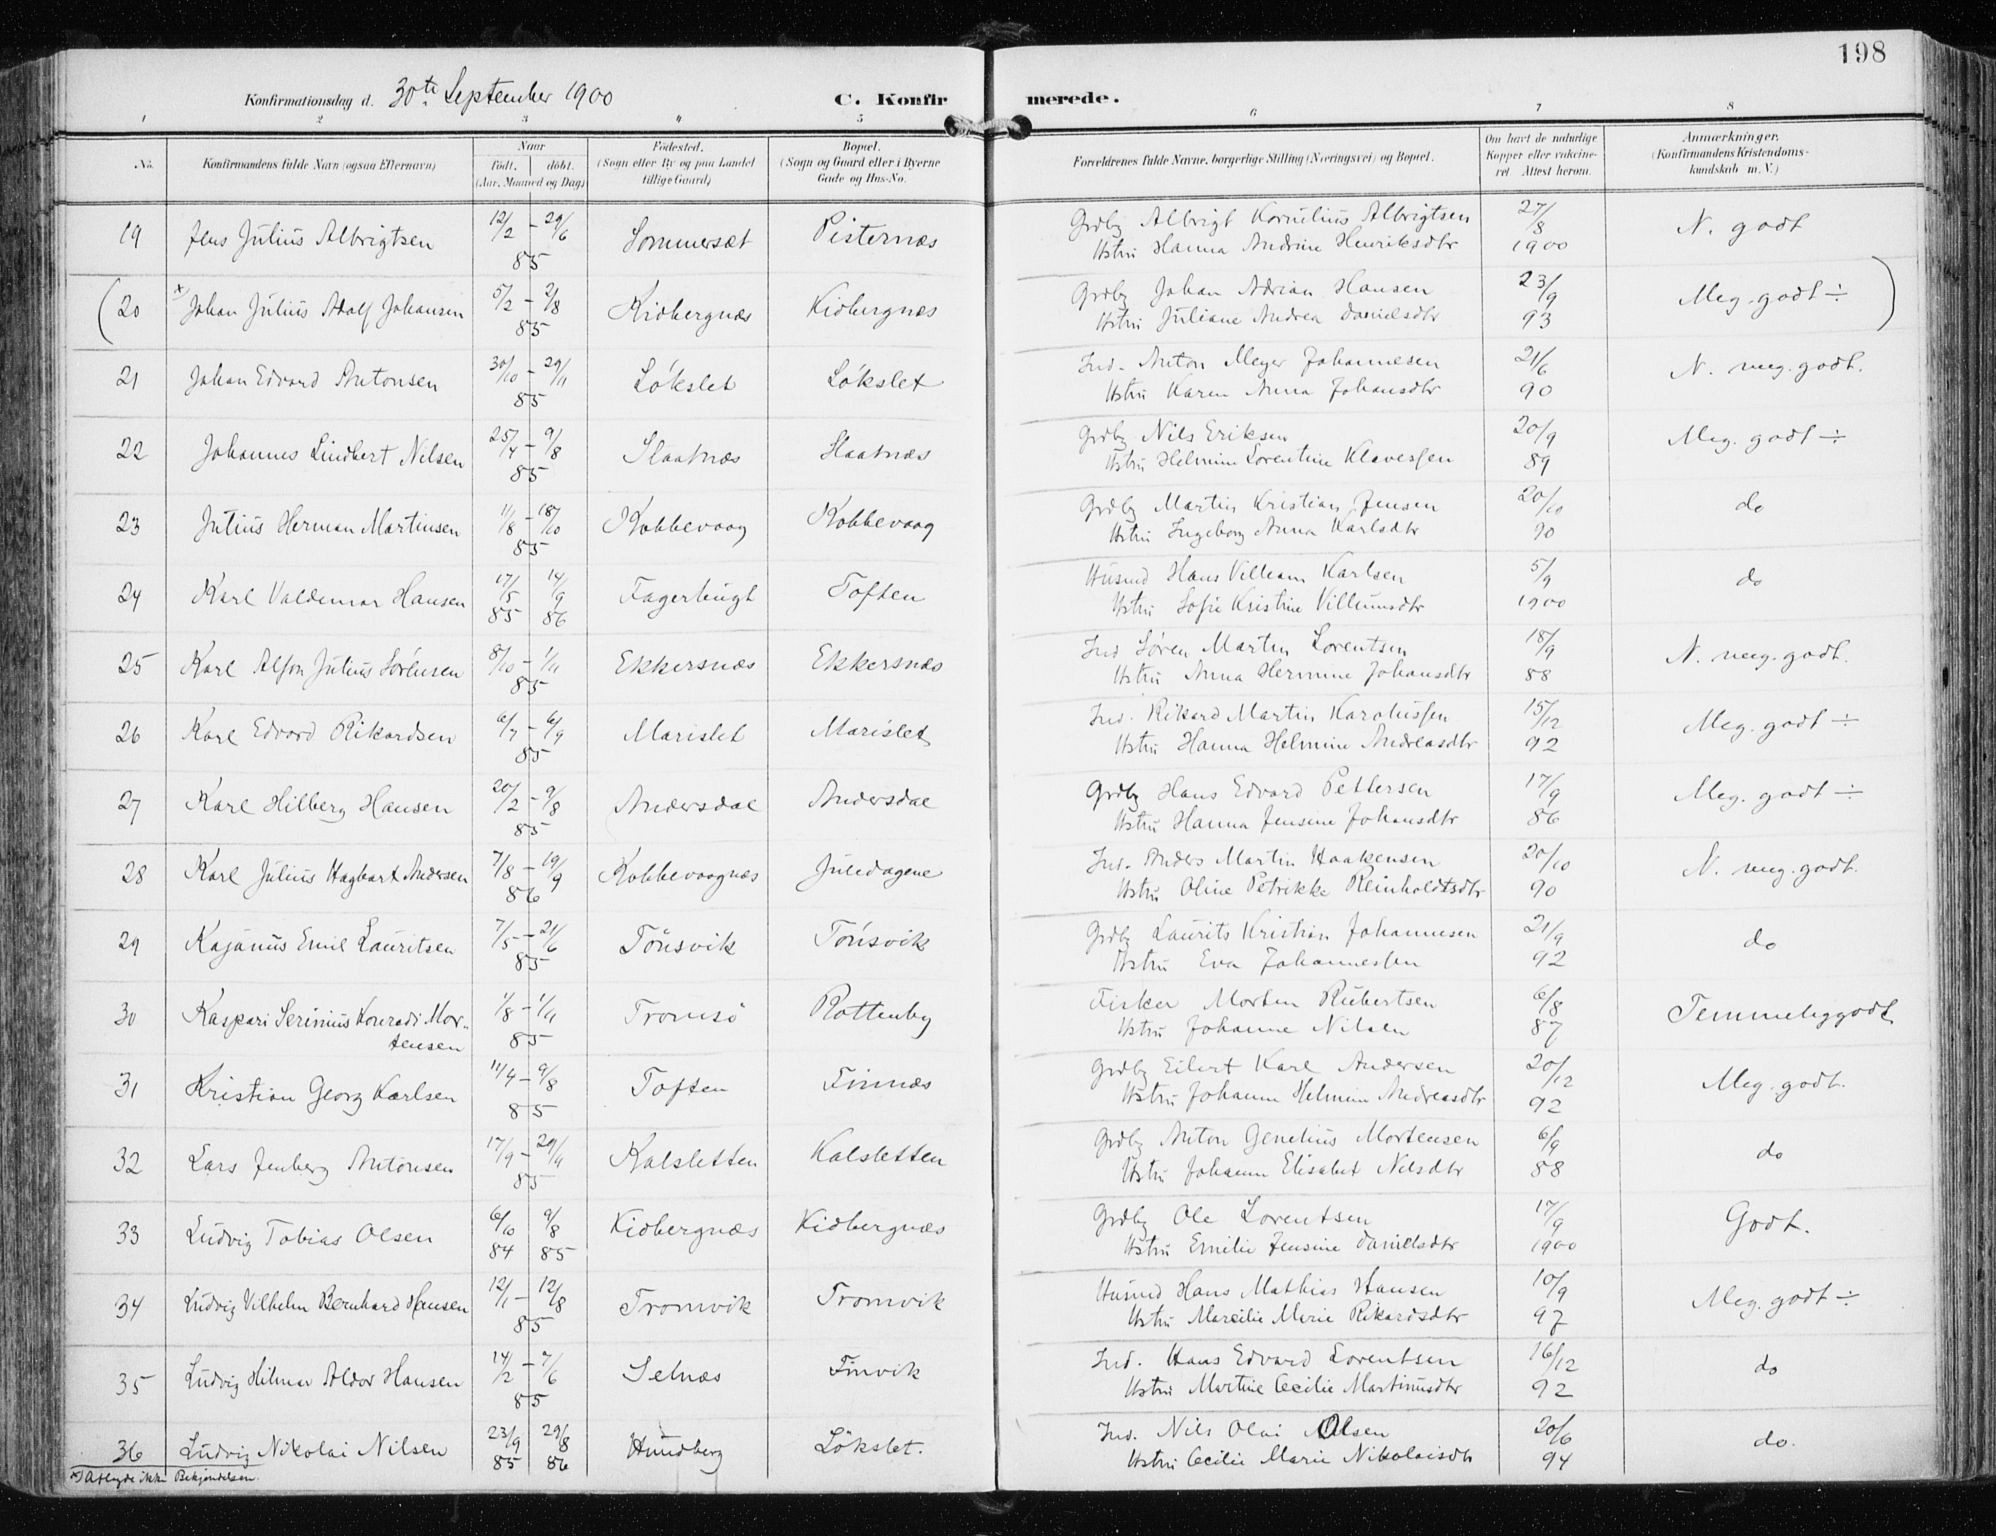 198
Konfirmationsdag d. 30te September 1900 C. Konfirmerede.
1 2 3 4 5 6 7 8
No. Konfirmandens fulde Navn (ogsaa Efternavn) Naar født. døbt. (Aar, Maaned og Dag) Fødested. (Sogn eller By og paa Landet tillige Gaard) Bopæl. (Sogn og Gaard eller i Byerne Gade og Hus-No. Forældrenes fulde Navne, borgerlige Stilling (Næringsvei) og Bopæl. Om havt de naturlige Kopper eller vakcineret. Attest herom. Anmærkninger. (Konfirmandens Kristendomskundskab m. V.)
19 Jens Julius Albrigtsen 12/2 – 29/6 85 Sommersæt Pisternæs Grdbg Albrigt Kornelius Albrigtsen 27/8
Hstru Hanna Andrine Henriksdtr 1900 N. godt
(20 x) Johan Julius Adolf Johansen 5/2 – 2/8 85 Kidbergnæs Kidbergnæs Grdbg Johan Adrian Hansen 23/9
Hstru Juliane Andrea Danielsdtr 93 Meg. godt ÷ )
21 Johan Edvard Antonsen 30/10 – 29/11 85 Løkslet Løkslet Ind. Anton Meyer Johannesen 21/6
Hstru Karen Anna Johansdtr 90 N. meg. godt.
22 Johannes Lindbert Nilsen 25/4 – 9/8 85 Slaatnæs Slaatnæs Grdbg Nils Eriksen 20/9
Hstru Helmine Lorentine Klavessen 89 Meg. godt ÷
23 Julius Herman Martinsen 11/8 – 18/10 85 Kobbevaag Kobbevaag Grdbg Martin Kristian Jensen 20/10
Hstru Ingeborg Anna Karlsdtr 90 do
24 Karl Valdemar Hansen 17/5 85 14/9 86 Fagerbugt Toften Husmd Hans Villeam Karlsen 5/9
Hstru Sofie Kristine Villumsdtr 1900 do
25 Karl Alfon Julius Sørensen 8/10 – 1/11 85 Ekkersnæs Ekkersnæs Ind Søren Martin Lorentsen 18/9
Hstru Anna Hermine Johansdtr 88 N. meg. godt.
26 Karl Edvard Rikardsen 6/7 – 6/9 85 Marislet Marislet Ind. Rikard Martin Karolussen 15/12
Hstru Hanna Helmine Andreasdtr 92 Meg. godt ÷
27 Karl Hilberg Hansen 20/2 – 9/8 85 Andersdal Andersdal Grdbg Hans Edvard Pettersen 17/9
Hstru Hanna Jensine Johansdtr 86 Meg. godt ÷
28 Karl Julius Hagbart Andersen 7/8 – 19/9 86 Kobbevaagnæs Juledagene Ind. Anders Martin Haakensen 20/10
Hstru Oline Petrikke Reinholdtsdtr 90 N. meg. godt.
29 Kajanus Emil Lauritsen 7/5 – 21/6 85 Tønsvik Tønsvik Grdbg Laurits Kristian Johannesen 21/9
Hstru Eva Johannessen 92 do
30 Kaspari Serinius Konradi Mor-
tensen 1/8 – 1/11 85 Tromsø Rottenby Fisker Morten Rubertsen 6/8
Hstru Johanne Nilsen 87 Temmeliggodt
31 Kristian Georg Karlsen 11/4 – 9/8 85 Toften Finnæs Grdbg Eilert Karl Andersen 20/12
Hstru Johanne Helmine Andreasdtr 92 Meg. godt.
32 Lars Jenberg Antonsen 17/9 – 29/11 85 Kalsletten Kalsletten Grdbg Anton Genelius Mortensen 6/9
Hstru Johanne Elisabet Nilsdtr 88 do
33 Ludvig Tobias Olsen 6/10 84 9/8 85 Kidbergnæs Kidbergnæs Grdbg Ole Lorentsen 17/9
Hstru Emilie Jensine Danielsdtr 1900 Godt.
34 Ludvig Vilhelm Bernhard Hansen 12/1 – 12/8 85 Tromvik Tromvik Husmd Hans Mathias Hansen 10/9
Hstru Marcilie Marie Rikardsdtr 97 Meg. godt ÷
35 Ludvig Hilmar Aldor Hansen 14/2 – 7/6 85 Selnæs Finvik Ind. Hans Edvard Lorentsen 16/12
Hstru Martine Cecilie Martinusdtr 92 do
36 Ludvig Nikolai Nilsen 23/9 85 29/8 86 Hundberg Løkslet. Ind. Nils Olai Olsen 20/6
Hstru Cecilie Marie Nikolaisdtr 94 do.
x) Aflagde ikke Bekjendelsen.